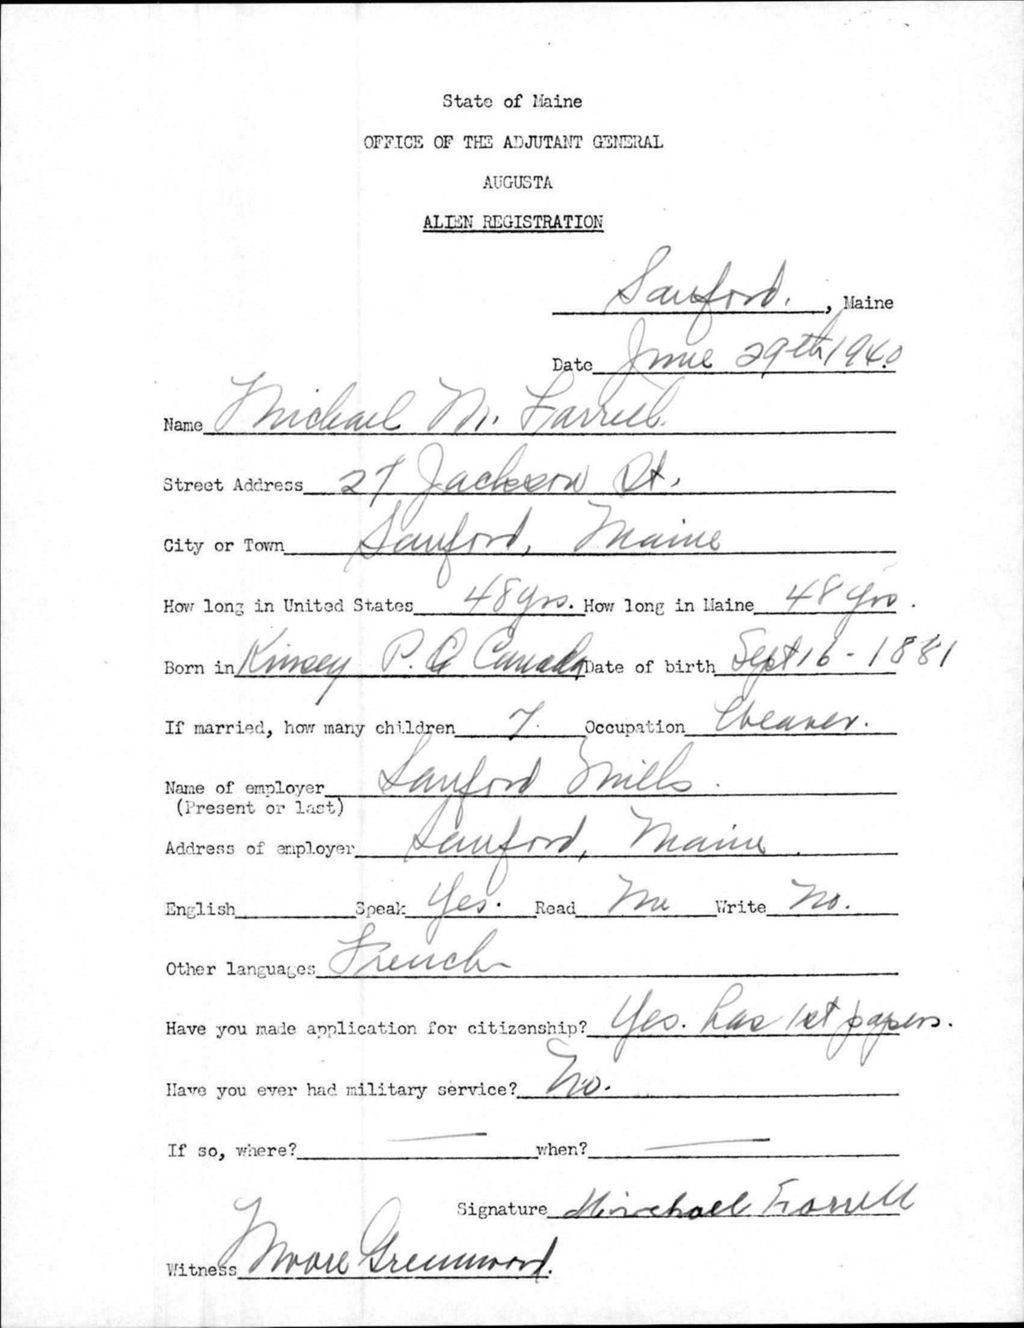 State of Maine
OFFICE OF THE ADJUTANT GENERAL
AUGUSTA
ALIEN REGISTRATION
Sanford. , Maine
Date June 29th 1940
Name Michael M. Farrell.
Street Address 27 Jackson St.
City or Town Sanford, Maine
How long in United States 48 yrs. How long in Maine 48 yrs.
Born in Kinsey P. Q Canada Date of birth Sept 16 - 1881
If married, how many children 7. Occupation Weaver.
Name of employer Sanford Mills.
(Present or last)
Address of employer Sanford, Maine.
English Speak Yes. Read No Write No.
Other languages French
Have you made application for citizenship? Yes. has 1st papers.
Have you ever had military service? No.
If so, where? — when? —
Signature Mirchael Farrell
Witness Moore Greenwood.